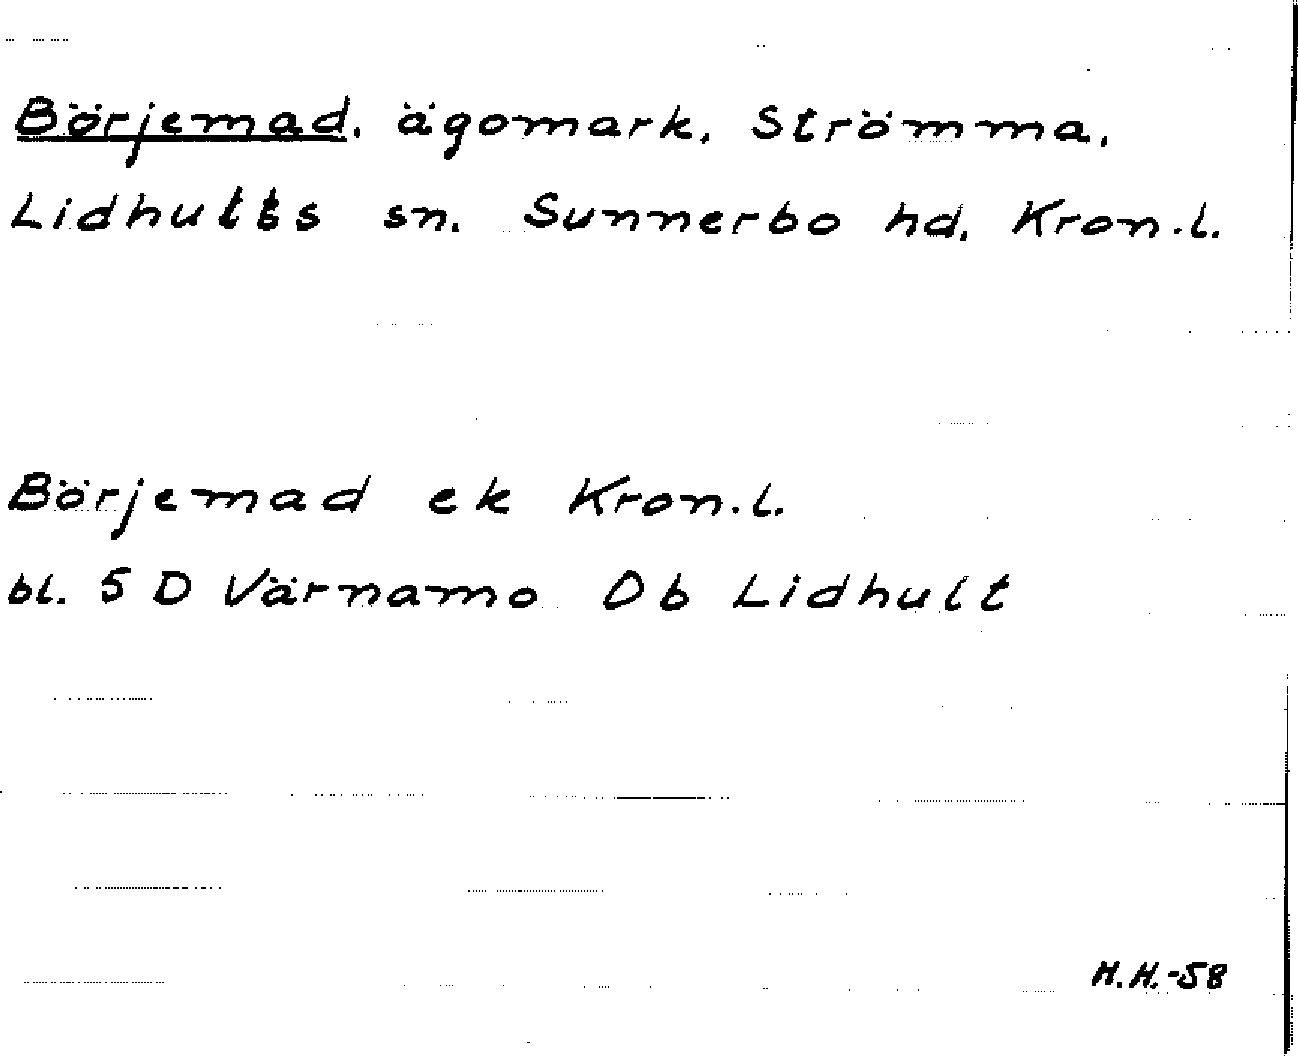 Börjemad, ägomark, Strömma,
Lidhults sn. Sunnerbo hd, Kron.l.
Börjemad ek Kron.l.
bl. 5 D Värnamo Ob Lidhult
H.H.-58